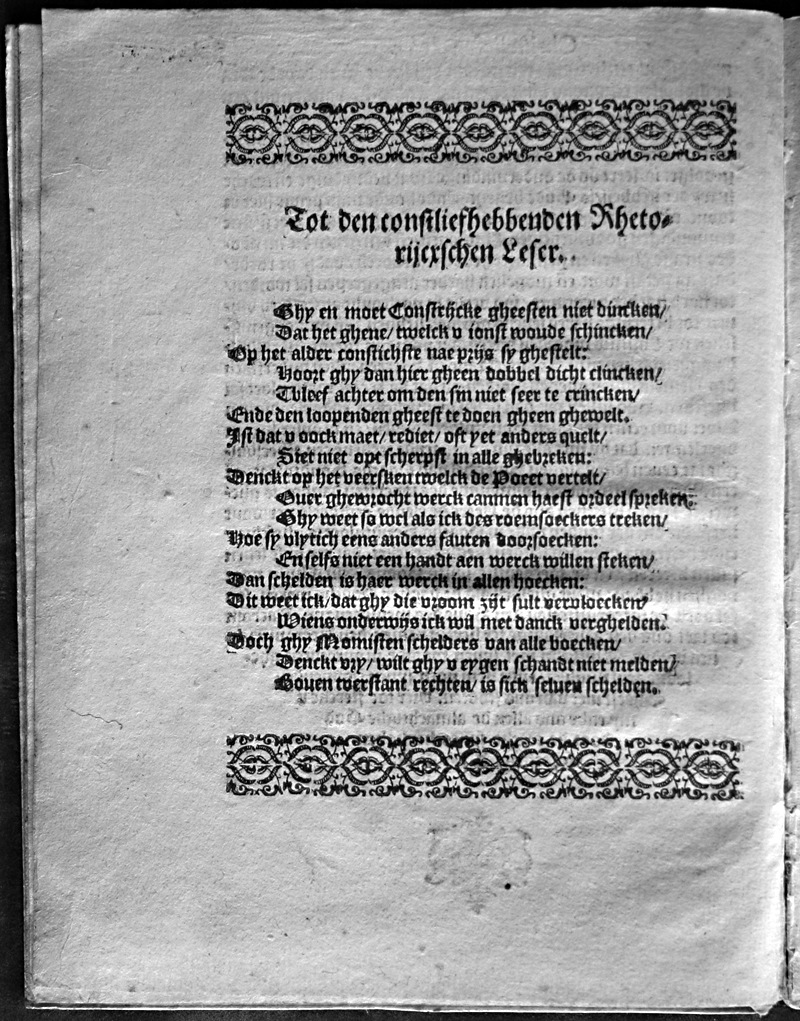 Tot den constliefhebbenden Rheto-
rijcxschen Leser.
Ghy en moet Constrijcke gheesten niet duncken/
Dat het ghene/ twelck v ionst woude schincken/
Op het alder constichste nae prijs sy ghestelt:
Hoort ghy dan hier gheen dobbel dicht clincken/
Tbleef achter om den sin niet seer te crincken/
Ende den loopenden gheest te doen gheen ghewelt.
Ist dat v oock maet/ rediet/ oft yet anders quelt/
Siet niet opt scherpst in alle ghebreken:
Denckt op het veersken twelck de Poeet vertelt/
Ouer ghewrocht werck canmen haest ordeel spreken.
Ghy weet so wel als ick des roemsoeckers treken/
Hoe sy vlytich eens anders fauten doorsoecken:
En selfs niet een handt aen werck willen steken/
Dan schelden is haer werck in allen hoecken:
Dit weet ick/ dat ghy die vroom zijt sult vervloecken/
Wiens onderwijs ick wil met danck verghelden.
Doch ghy Momisten schelders van alle boecken/
Denckt vry/ wilt ghy v eygen schandt niet melden/
Bouen verstant rechten/ is sick seluen schelden.